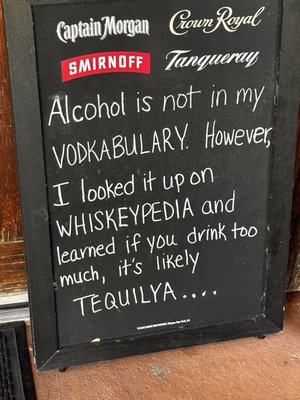 Captain Morgan Crown Royal
SMIRNOFF Tanqueray
Alcohol is not in my
VODKABULARY. However,
I looked it up on
WHISKEYPEDIA and
learned if you drink too
much, it's likely
TEQUILYA....
PLEASE DRINK RESPONSIBLY. Diageo, New York, NY.